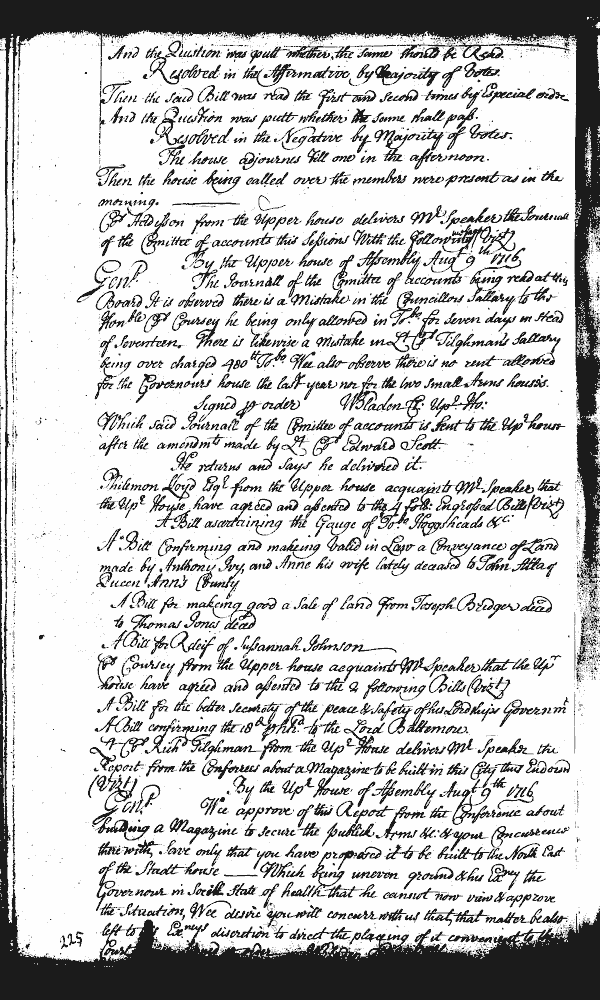 And the Question was putt whether the same should be Read.
Resolved in the Affirmative by Majority of Votes.
Then the said Bill was read the first and second times by Especial order
And the Question was putt whether the same shall pass.
Resolved in the Negative by Majority of Votes.
The house adjournes till one in the afternoon.
Then the house being called over the members were present as in the
morning.
Coll Addison from the Upper house delivers Mr Speaker the Journall
of the Comittee of accounts this Sessions With the following (Vizt)
By the Upper house of Assembly Augt 9th 1716
Gent. The Journall of the Comittee of accounts being read at this
Board It is observed there is a Mistake in the Councillors Sallary to the
Honble Coll Coursey he being only allowed in Tobo for Seven days in Stead
of Seventeen. There is likewise a mistake in Lt Coll Tilghmans Sallary
being over charged 480 lb Tobo. Wee also observe there is no rent allowed
for the Governours house the last year nor for the two Small Arms houses.
Signed p order WBladen Cl: Upr Ho:
Which said Journall of the Comittee of accounts is sent to the Upr house
after the amendmts made by Lt Coll Edward Scott.
He returns and Says he delivered it.
Philemon Lloyd Esqr from the Upper house acquaints Mr Speaker that
the Upr House have agreed and assented to the 4 foll: Engrossed Bills (Vizt)
A Bill ascertaining the Gauge of Tobo Hoggsheads &c
A Bill Confirming and makeing Valid in Law a Conveyance of Land
made by Anthony Ivy, and Anne his wife lately deceased to John
Queen Ann's County
A Bill for makeing good a Sale of land from Joseph Bridger deced
to Thomas Jones deced
A Bill for Releif of Susannah Johnson
Coll Coursey from the Upper house acquaints Mr Speaker that the Upr
house have agreed and assented to the 2 following Bills (Vizt)
A Bill for the better security of the peace & Safety of his Lordships Governmt
A Bill confirming the 18d p hhd to the Lord Baltemore
Lt Coll Richd Tilghman from the Upr House delivers Mr Speaker the
Report from the Conferees about a Magazine to be built in this City thus Endorsed
(Vizt) By the Upr House of Assembly Augt 9th 1716
Gent. Wee approve of this Report from the Conference about
building a Magazine to secure the publick Arms &c: & your Concurrence
therewith, Save only that you have proposed it to be built to the North East
of the Stadt house Which being uneven ground & his Exncy the
Governour in Such State of health that he cannot now view & approve
the Situation, Wee desire you will concurr with us that, that matter be also
left to his Exncys discretion to direct the placeing of it convenient to the
Court
225